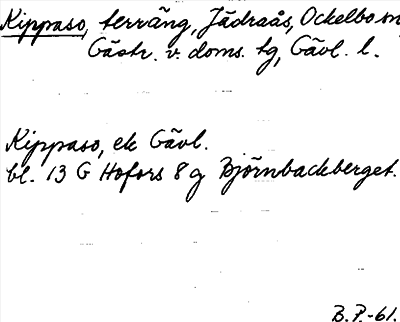 Kippaso, terräng, Jädraås, Ockelbo sn,
Gästr. v. doms. tg, Gävl. l.
Kippaso, ek Gävl.
bl. 13 G Hofors 8 g Björnbackberget.
B.P.-61.